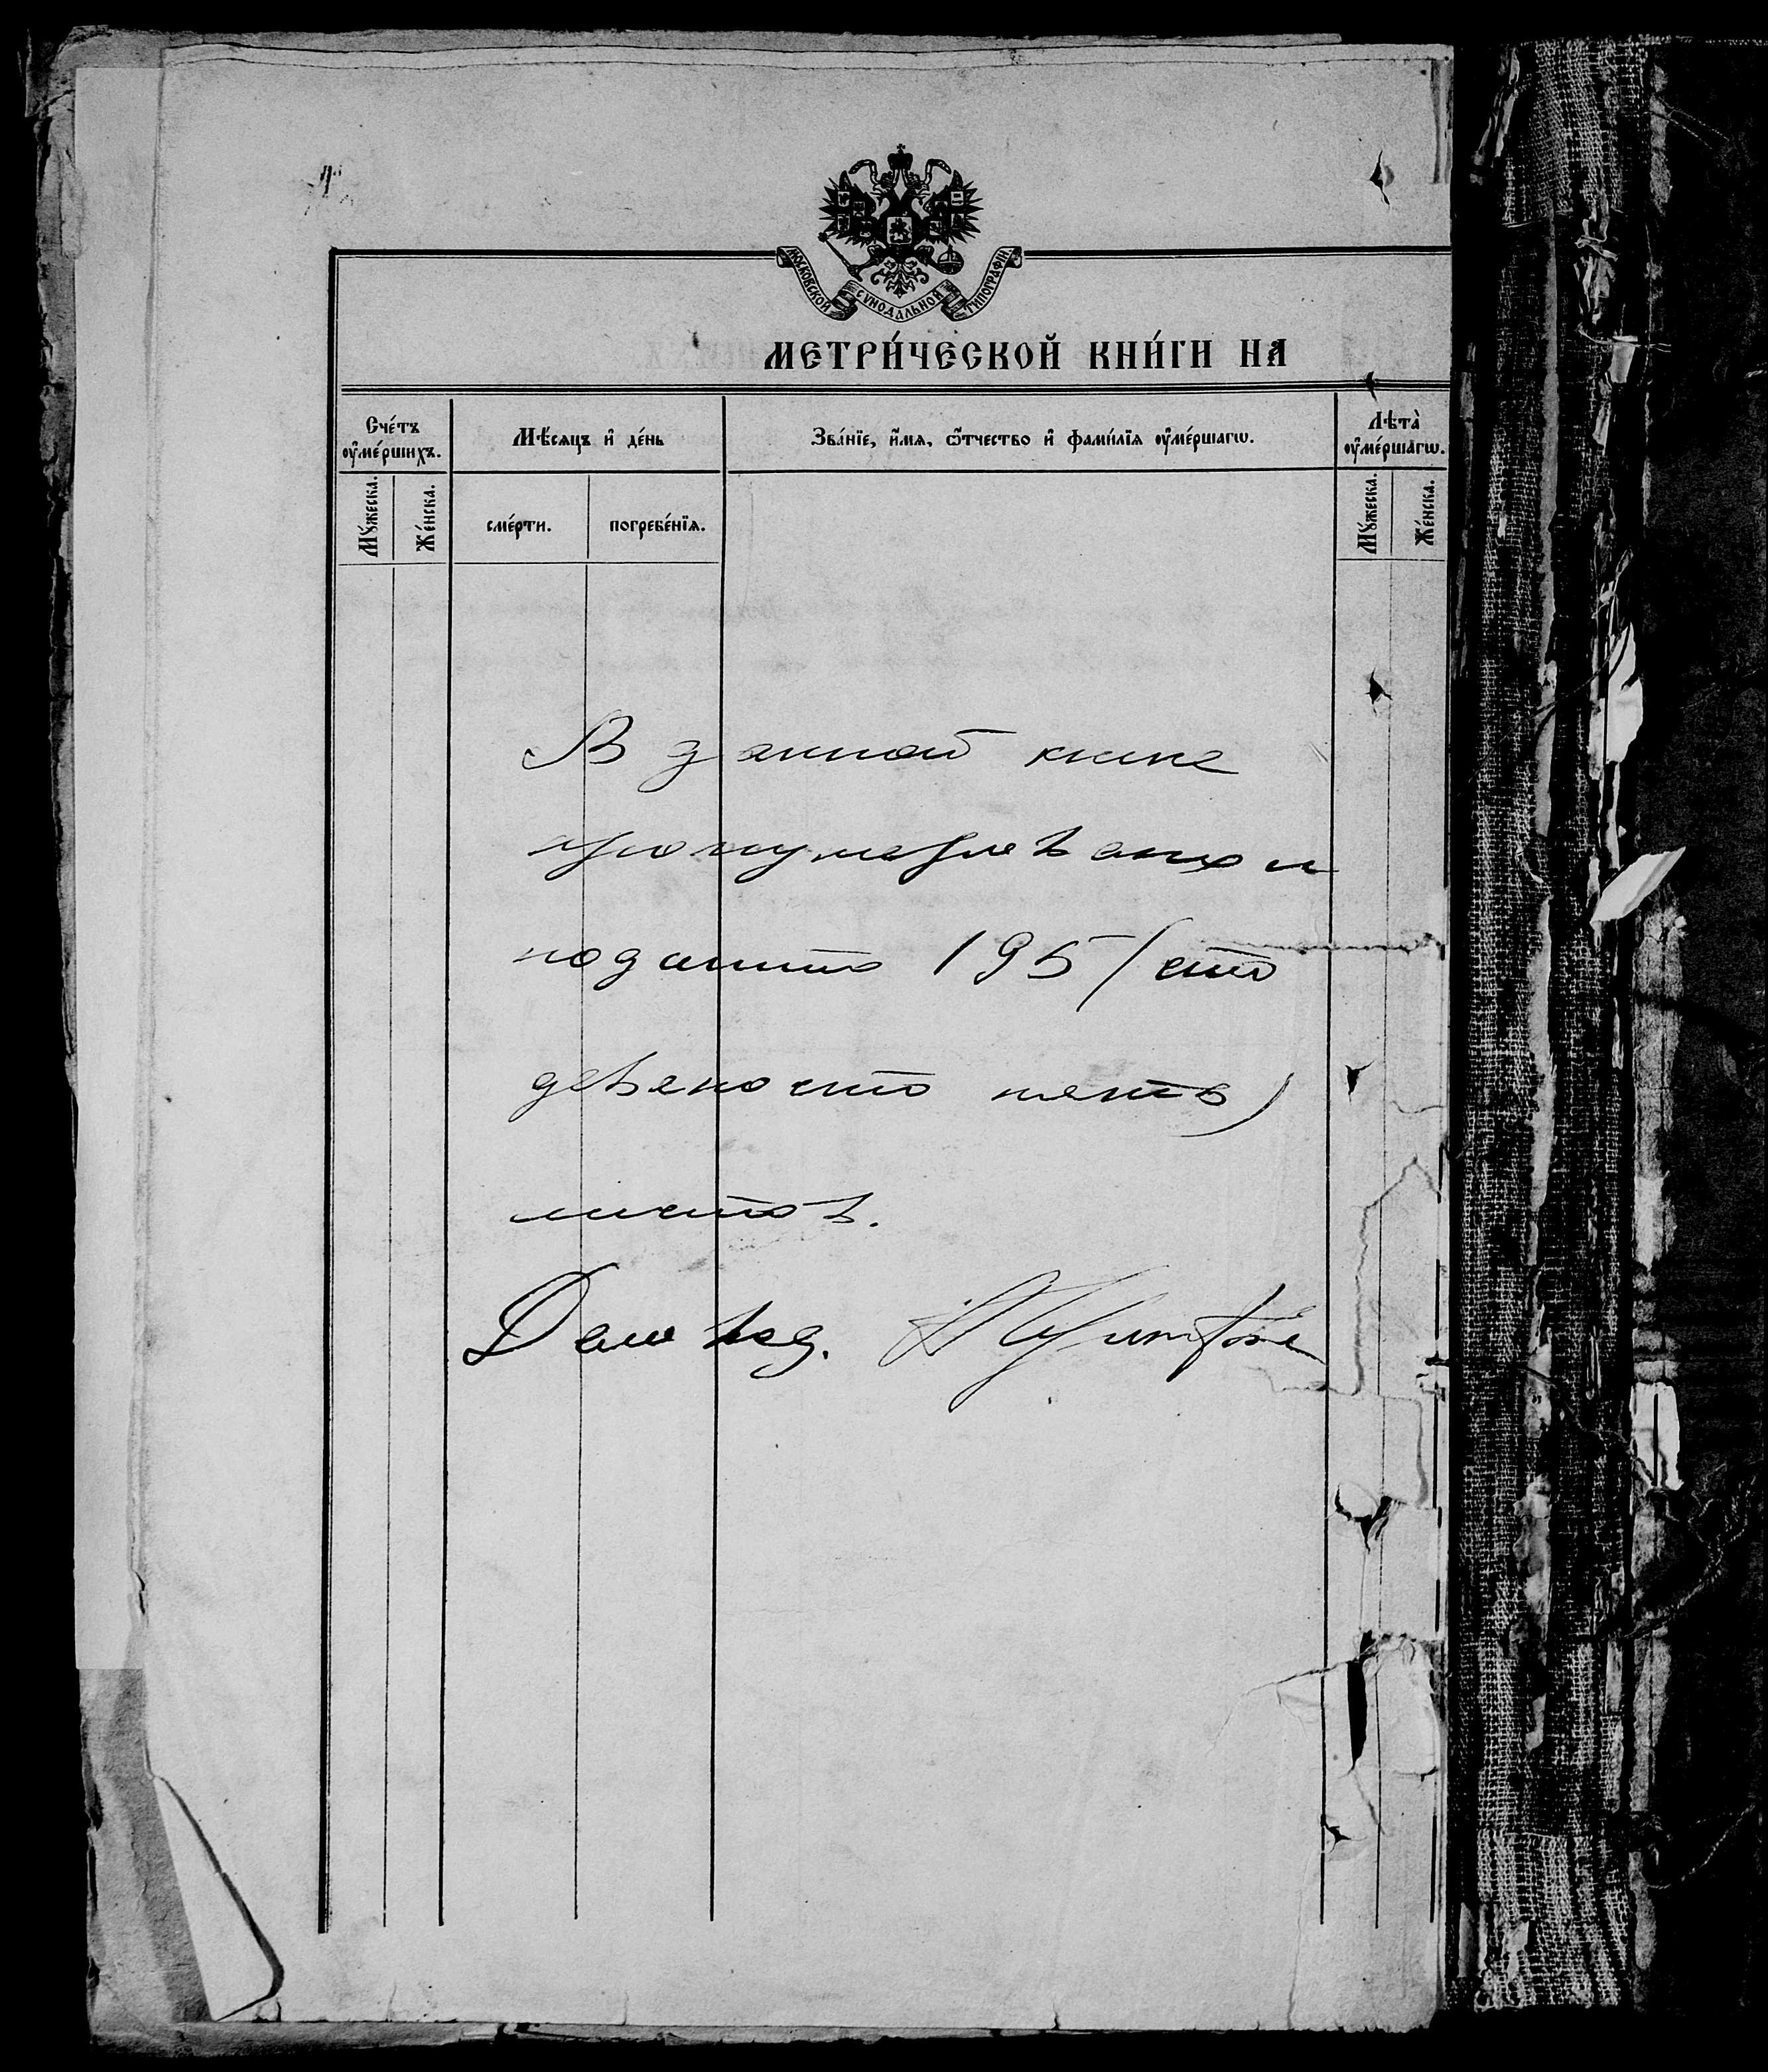 МОСКОВСКОЙ СѴНОДАЛЬНОЙ ТИПОГРАФІИ
МЕТРИ́ЧЕСКОЙ КНИ́ГИ НА
Сче́тъ ᲂу҆ме́ршихъ.
Мѣ́сяцъ и҆ де́нь
Зва́нїе, и҆́мѧ, ѻ҆́тчество и҆ фами́лїѧ ᲂу҆ме́ршагѡ.
Лѣта̀ ᲂу҆ме́ршагѡ.
Мꙋ́жеска.
Же́нска.
сме́рти.
погребе́нїѧ.
Мꙋ́жеска.
Же́нска.
В данной книге
пронумеровано и
подшито 195 (сто
девяносто пять)
листов.